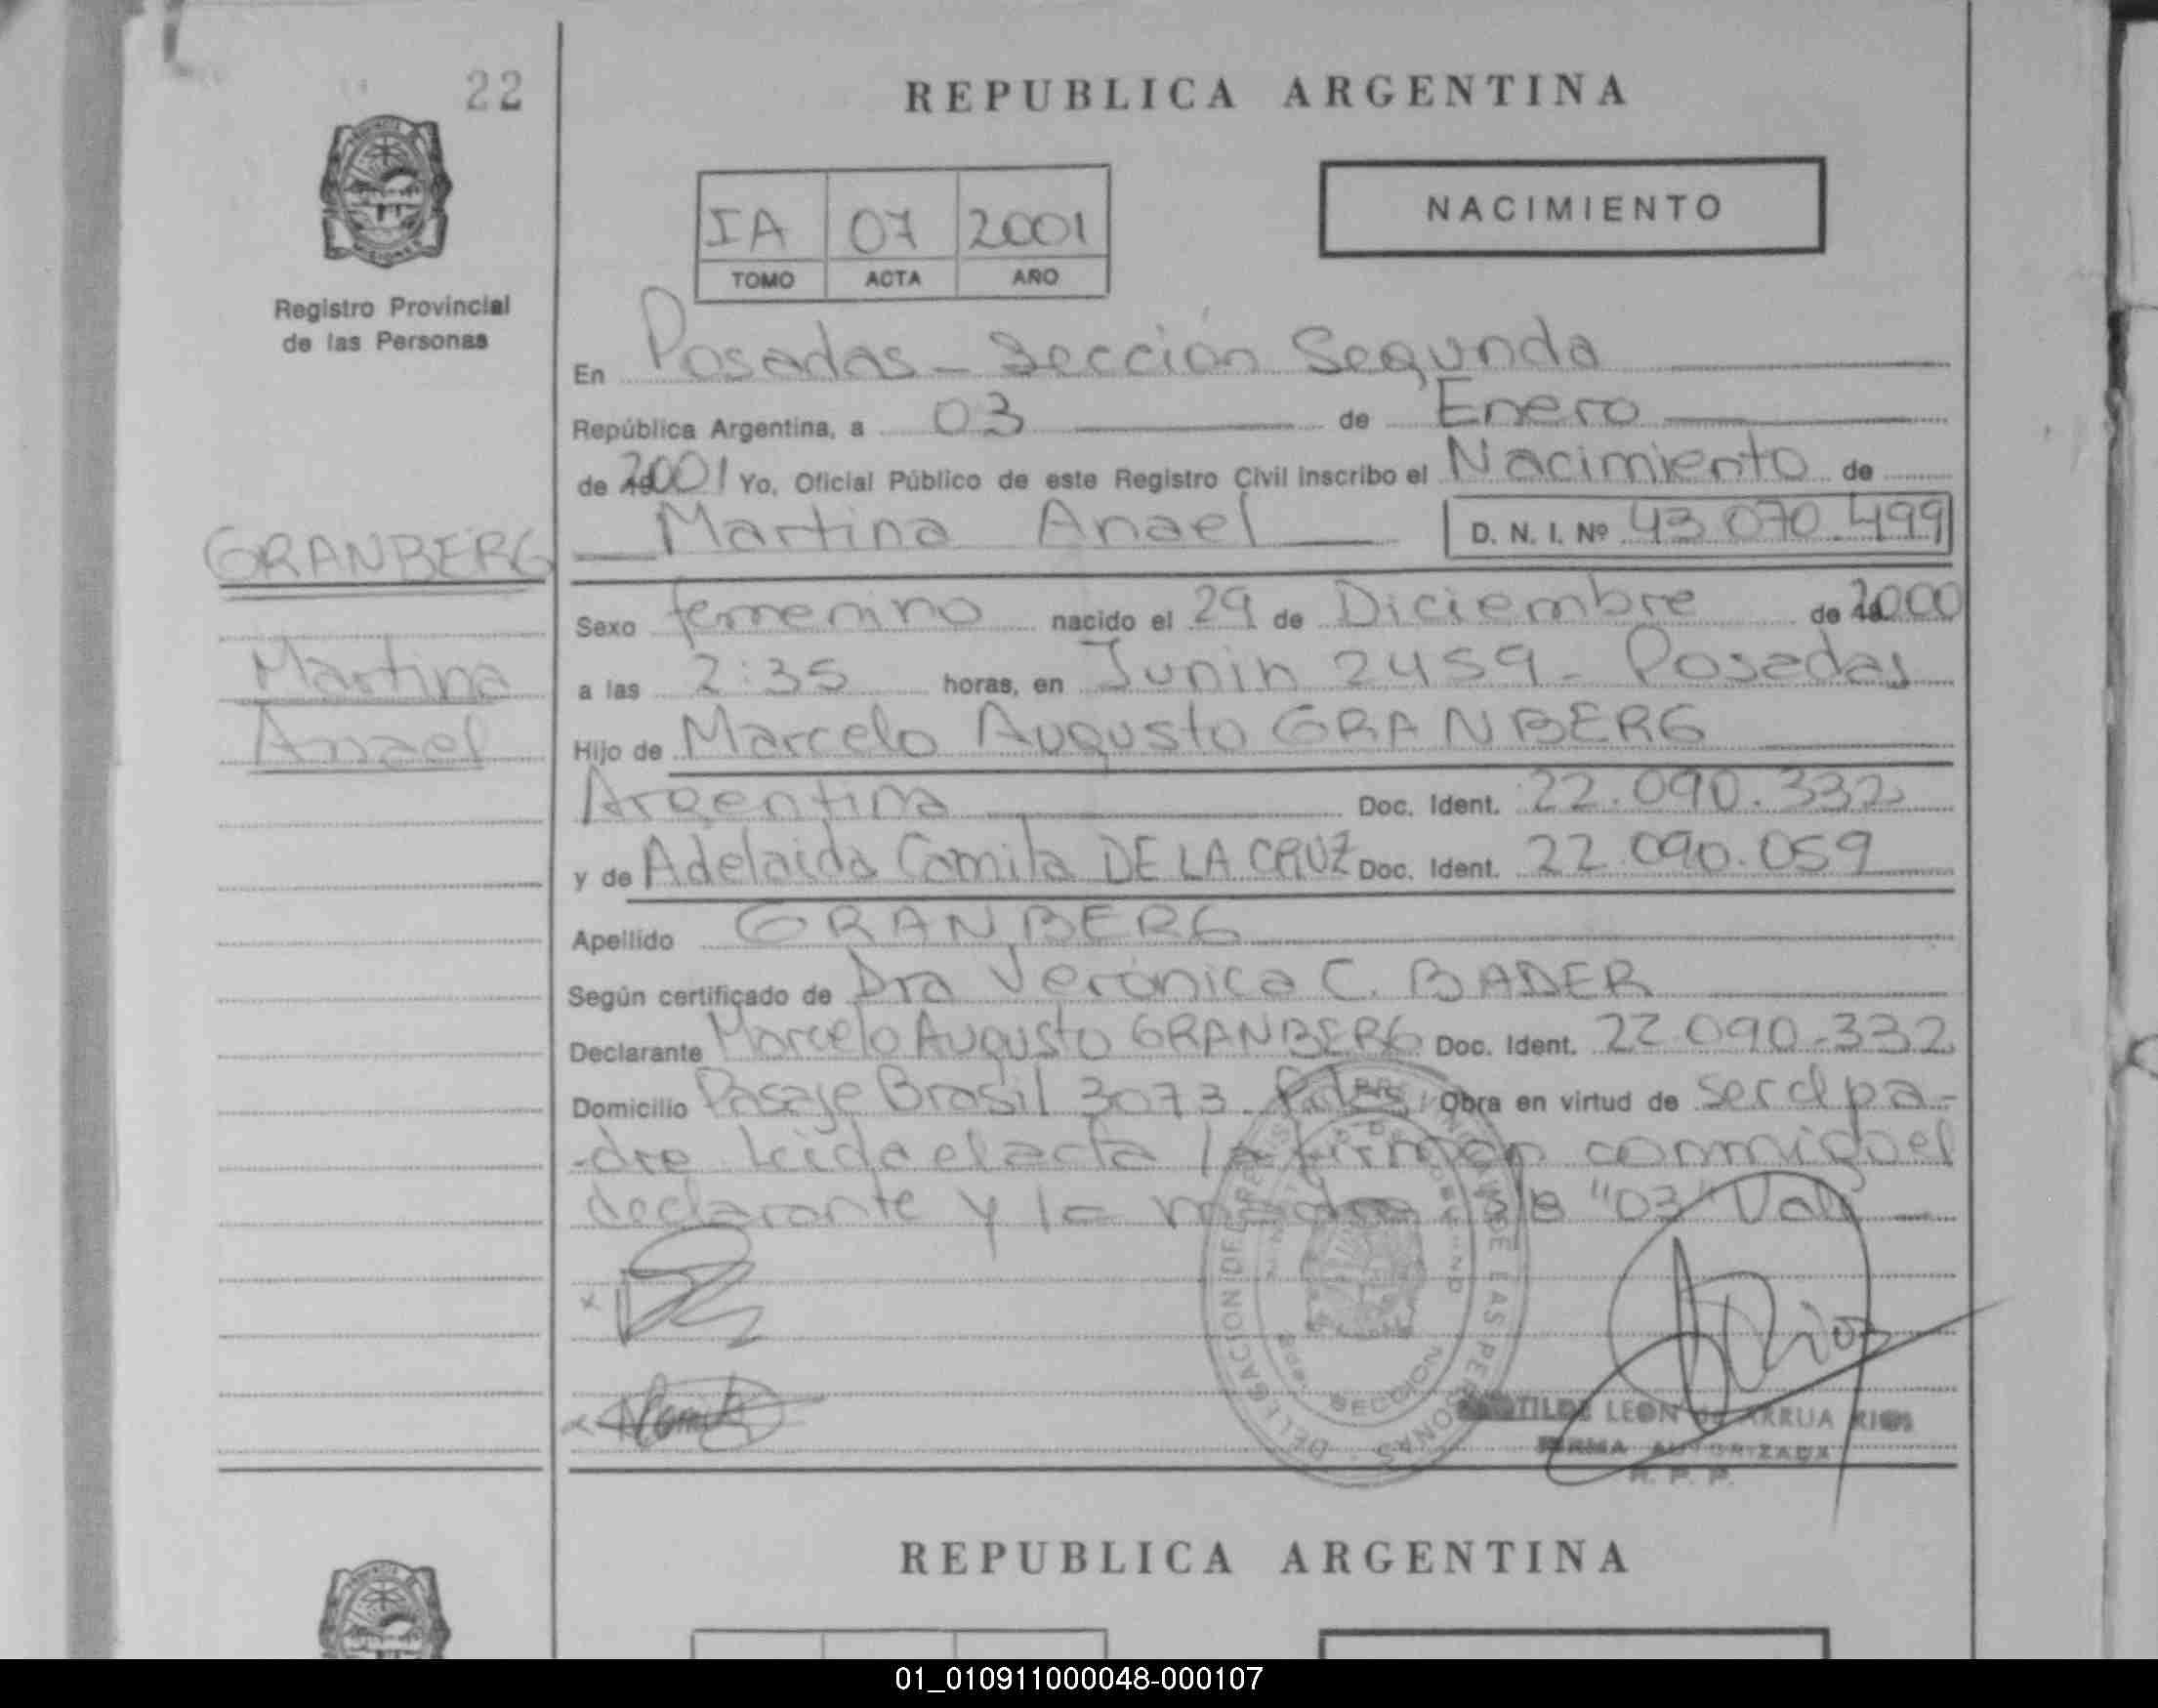 22
REPUBLICA ARGENTINA
IA 07 2001
TOMO ACTA AÑO
NACIMIENTO
Registro Provincial
de las Personas
En Posadas - Sección Segunda
República Argentina, a 03 de Enero
de 2001 Yo, Oficial Público de este Registro Civil inscribo el Nacimiento de
Martina Anael D. N. I. Nº 43.070.499
GRANBERG
Martina
Anael
Sexo femenino nacido el 29 de Diciembre de 2000
a las 2:35 horas, en Junin 2459 - Posadas
Hijo de Marcelo Augusto GRANBERG
Argentina Doc. Ident. 22.090.332
y de Adelaida Camila DE LA CRUZ Doc. Ident. 22.090.059
Apellido GRANBERG
Según certificado de Dra Verónica C. BADER
Declarante Marcelo Augusto GRANBERG Doc. Ident. 22.090.332
Domicilio Pasaje Brasil 3073 Pdas Obra en virtud de ser el pa-
-dre leida el acta la firman conmigo el
declarante y la madre s/b "03" Vale
DELEGACION DEL REGISTRO DE LAS PERSONAS
SECCION
Rios
LEON de ARRUA RIOS
FIRMA AUTORIZADA
R. P. P.
REPUBLICA ARGENTINA
01_010911000048-000107